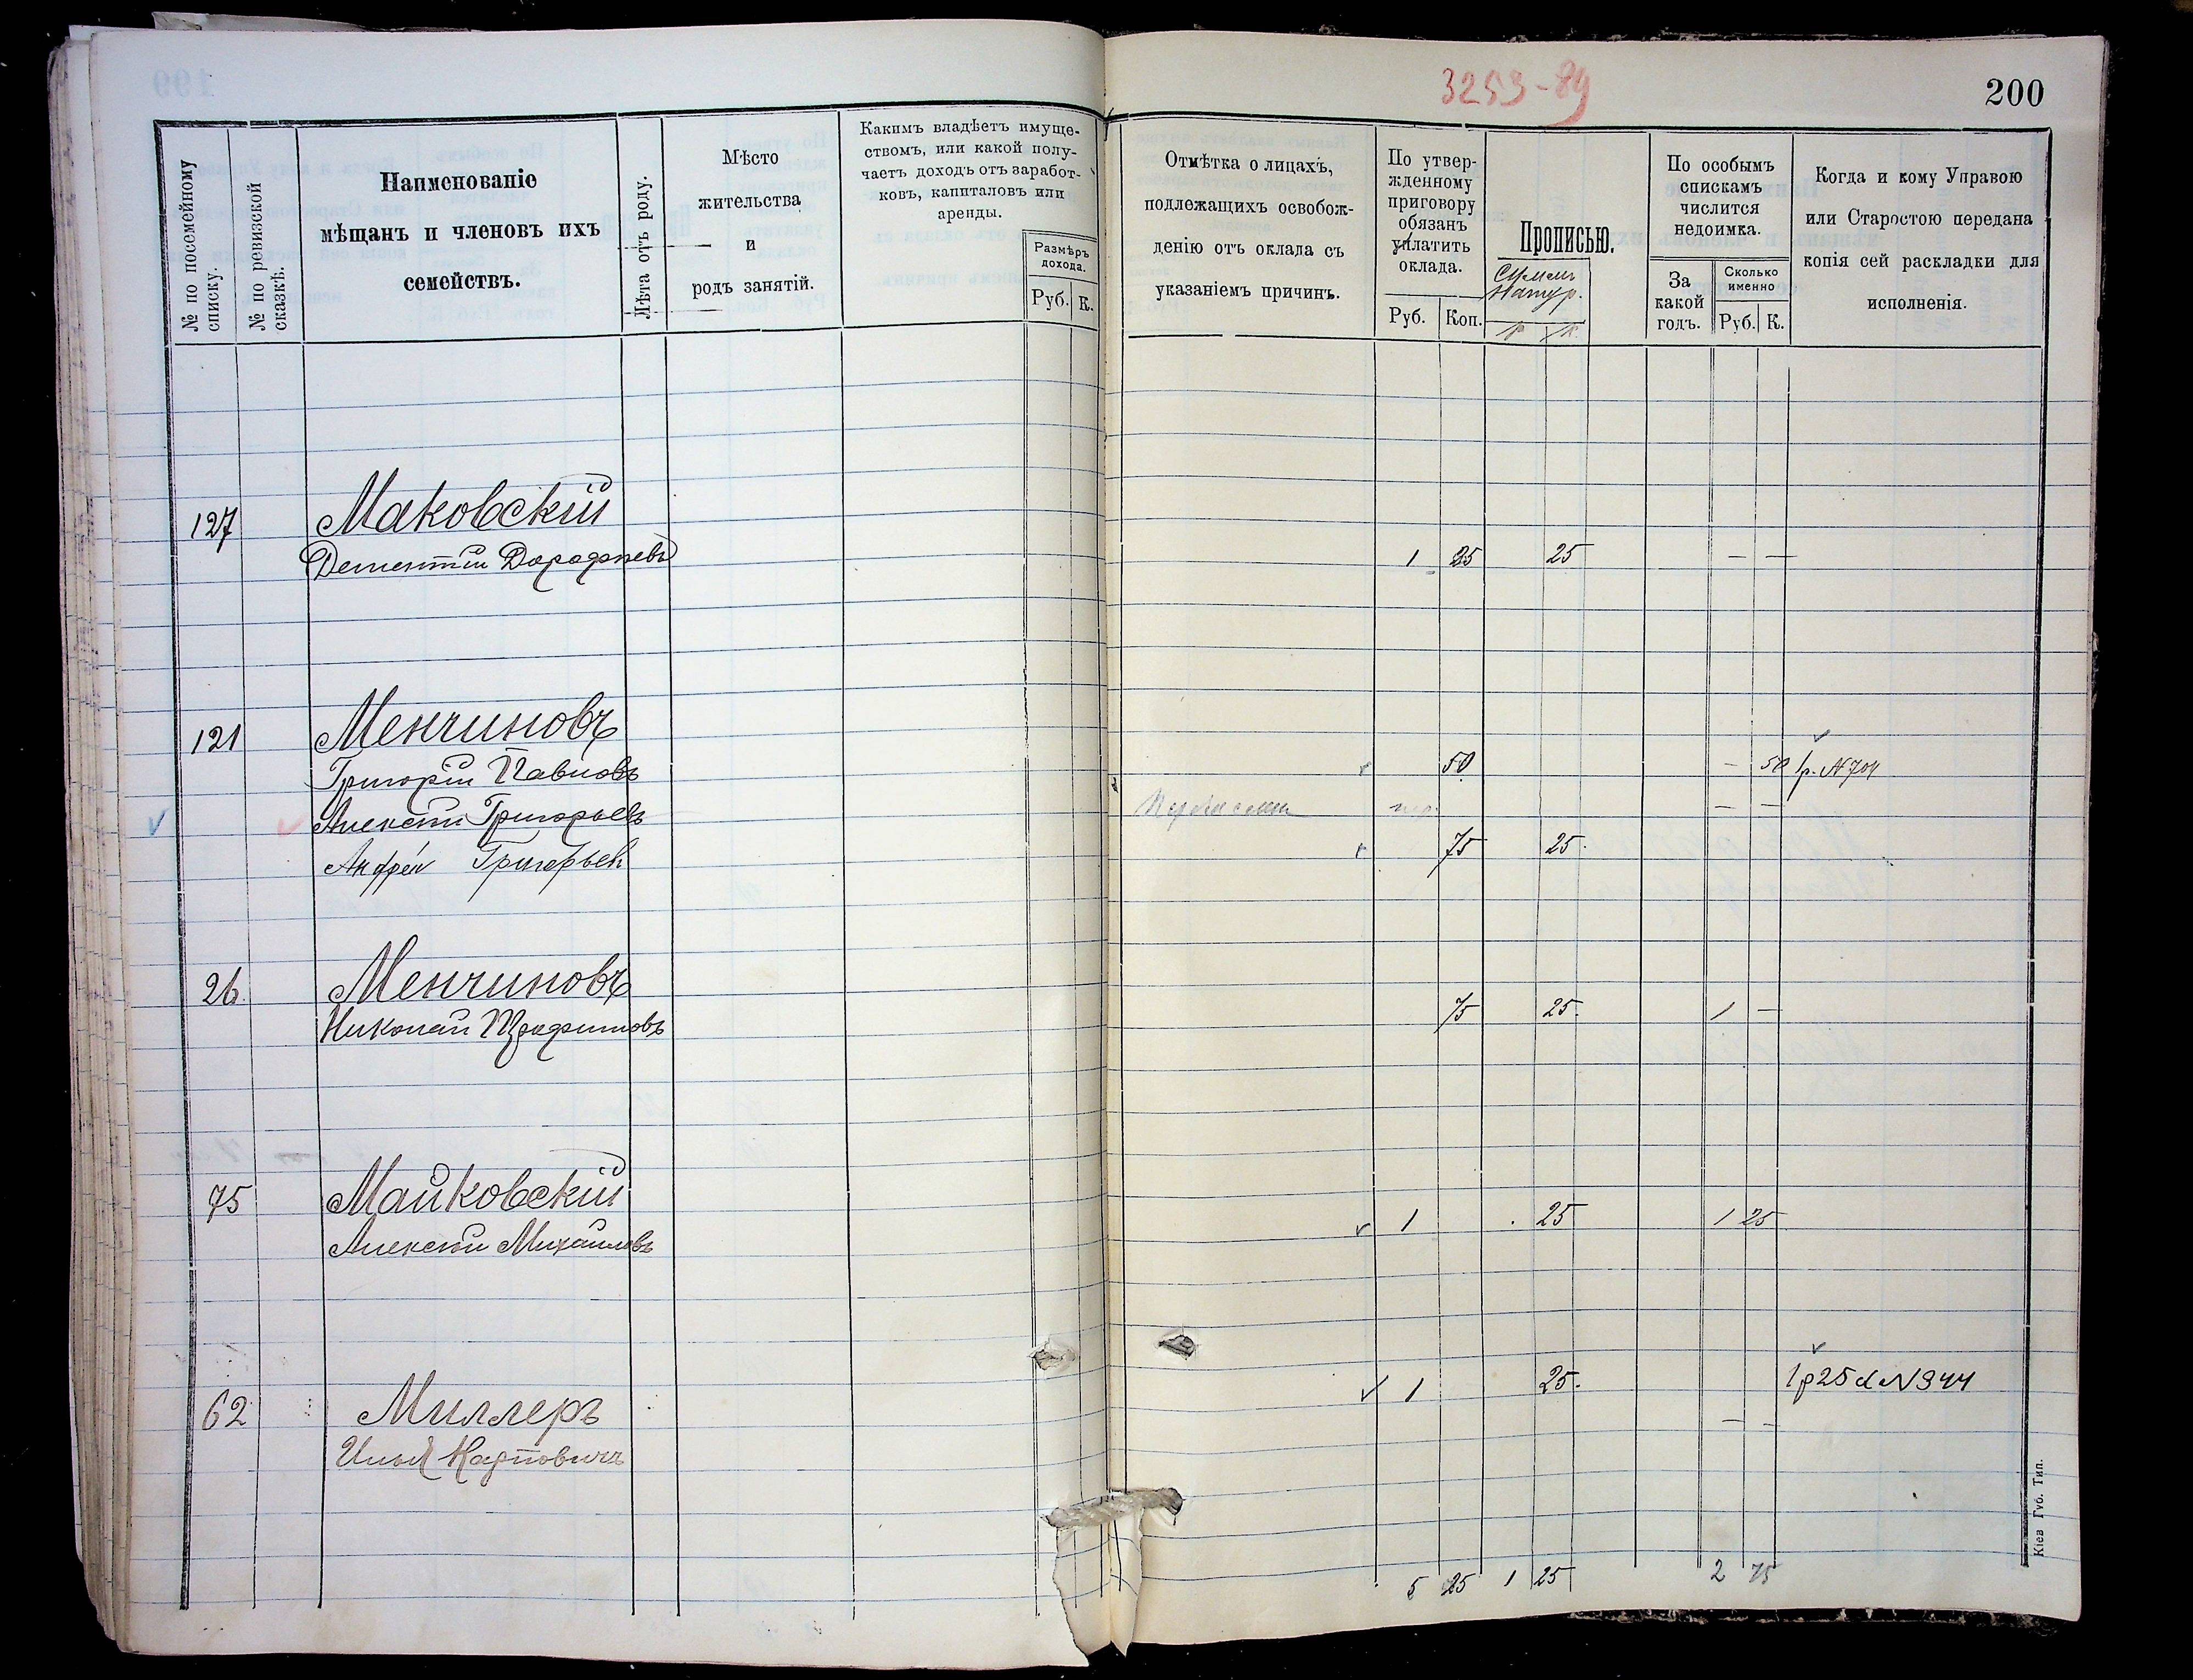 3253-89
200
№ по посемейному списку.
№ по ревизской сказкѣ.
Наименованіе
мѣщанъ и членовъ ихъ
семействъ.
Лѣта отъ роду.
Мѣсто
жительства
и
родъ занятій.
Какимъ владѣетъ имуще-
ствомъ, или какой полу-
чаетъ доходъ отъ заработ-
ковъ, капиталовъ или
аренды.
Размѣръ
дохода.
Руб. К.
Отмѣтка о лицахъ,
подлежащихъ освобож-
денію отъ оклада съ
указаніемъ причинъ.
По утвер-
жденному
приговору
обязанъ
уплатить
оклада.
Руб. Коп.
Прописью.
По особымъ
спискамъ
числится
недоимка.
За
какой
годъ.
Сколько
именно
Руб. К.
Когда и кому Управою
или Старостою передана
копія сей раскладки для
исполненія.
127 Маковскій
Дементій Дорофѣевъ 1 25 25 — —
121 Менчиновъ
Григорій Павловъ 50 — 50 № 704
Алексѣй Григорьевъ — —
Андрей Григорьев 75 25.
26 Менчиновъ 75 25. 1 —
Николай Трофимовъ
75 Майковскій 1 25 1 25
Алексѣй Михайловъ
62 Миллеръ 1 25. 1р 25 к № 344
Илья Карповичъ — —
5 25 1 25 2 75
Кіев Губ. Тип.